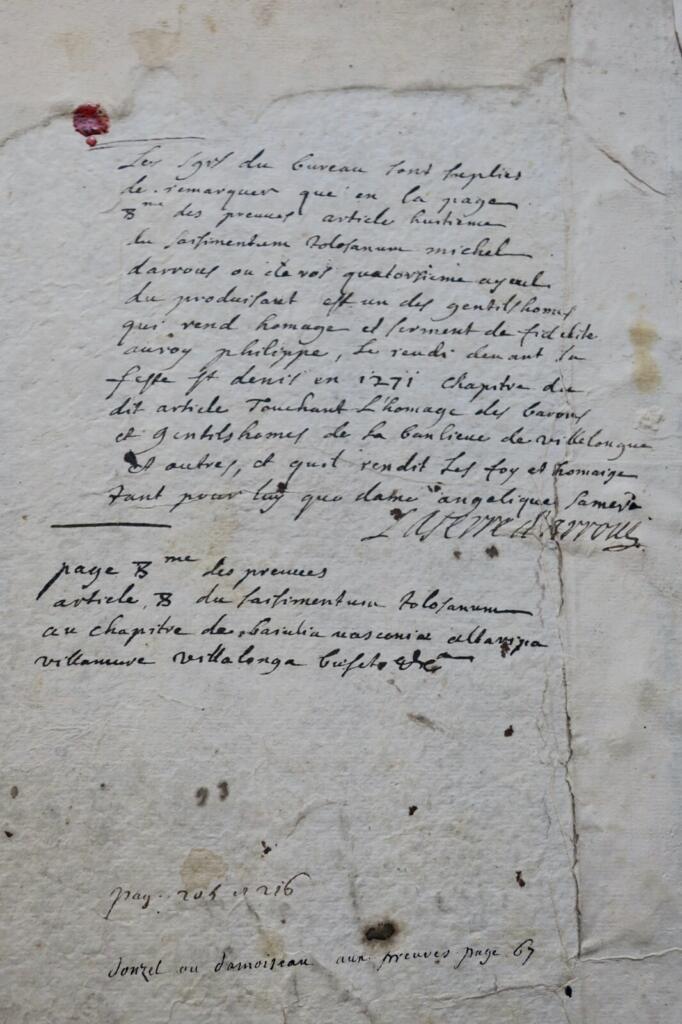 Les sgrs du bureau sont suplies
de remarquer que en la page
8me des preuues article huitieme
du saisimentum tolosanum michel
darrous ou de ros quatorsieme ayeul
du produisant est un des gentilshomes
qui rend homage et serment de fidelite
au roy philippe, le ieudi deuant la
feste st denis en 1271 chapitre du
dit article Touchant L'homage des barons
et gentilshomes de la banlieue de villelongue
et autres, et quil rendit les foy et homaige
tant pour luy que dame angelique sa mere
Laserre d'arroux
page 8me des preuues
article 8 du saisimentum tolosanum
au chapitre de baiulia uasconiae altaripa
villamure villalonga buseto &c
93
pag. 205 et 216
donzel ou damoiseau aux preuves page 67